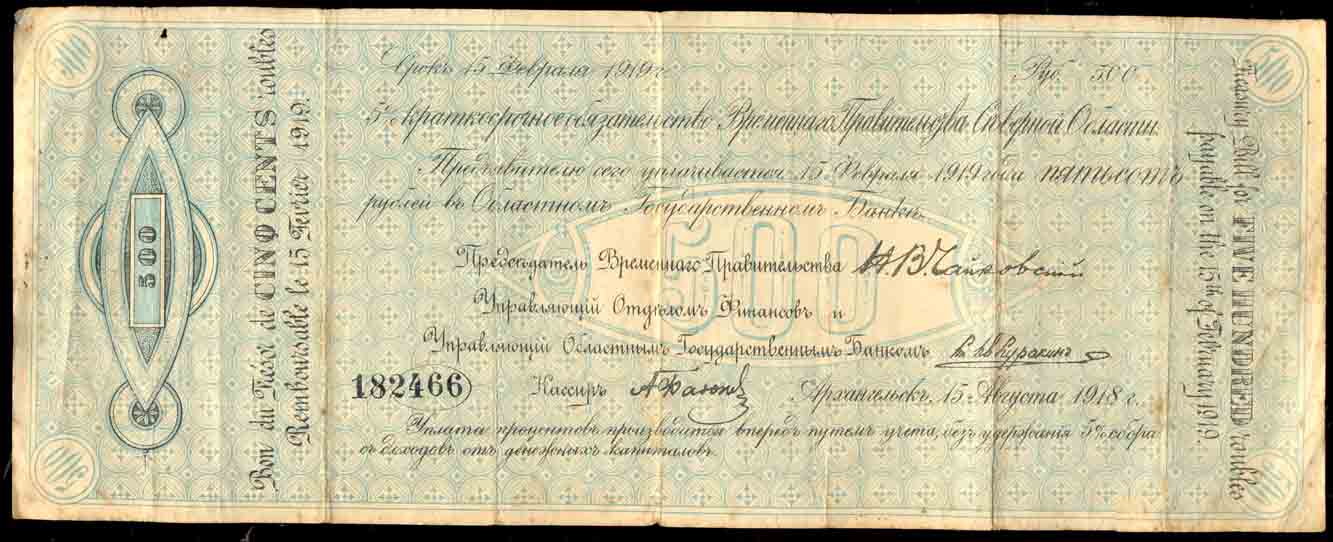 500
Bon du Trésor de CINQ CENTS roubles
Remboursable le 15 Fevrier 1919.
500
Срокъ 15 Февраля 1919 г.
Руб. 500
5% краткосрочное обязательство Временнаго Правительства Сѣверной Области.
Предъявителю сего уплачивается 15 Февраля 1919 года пятьсотъ
рублей въ Областномъ Государственномъ Банкѣ.
500
Предсѣдатель Временнаго Правительства Н. В. Чайковскій
Управляющій Отдѣломъ Финансовъ и
Управляющій Областнымъ Государственнымъ Банкомъ Куракинъ
182466
Кассиръ
Архангельскъ, 15 Августа 1918 г.
Уплата процентовъ производится впередъ путемъ учета, безъ удержанія 5% сбора
съ доходовъ отъ денежныхъ капиталовъ.
Treasury Bill for FIVE HUNDRED roubles
payable on the 15th of February 1919.
500
500
500